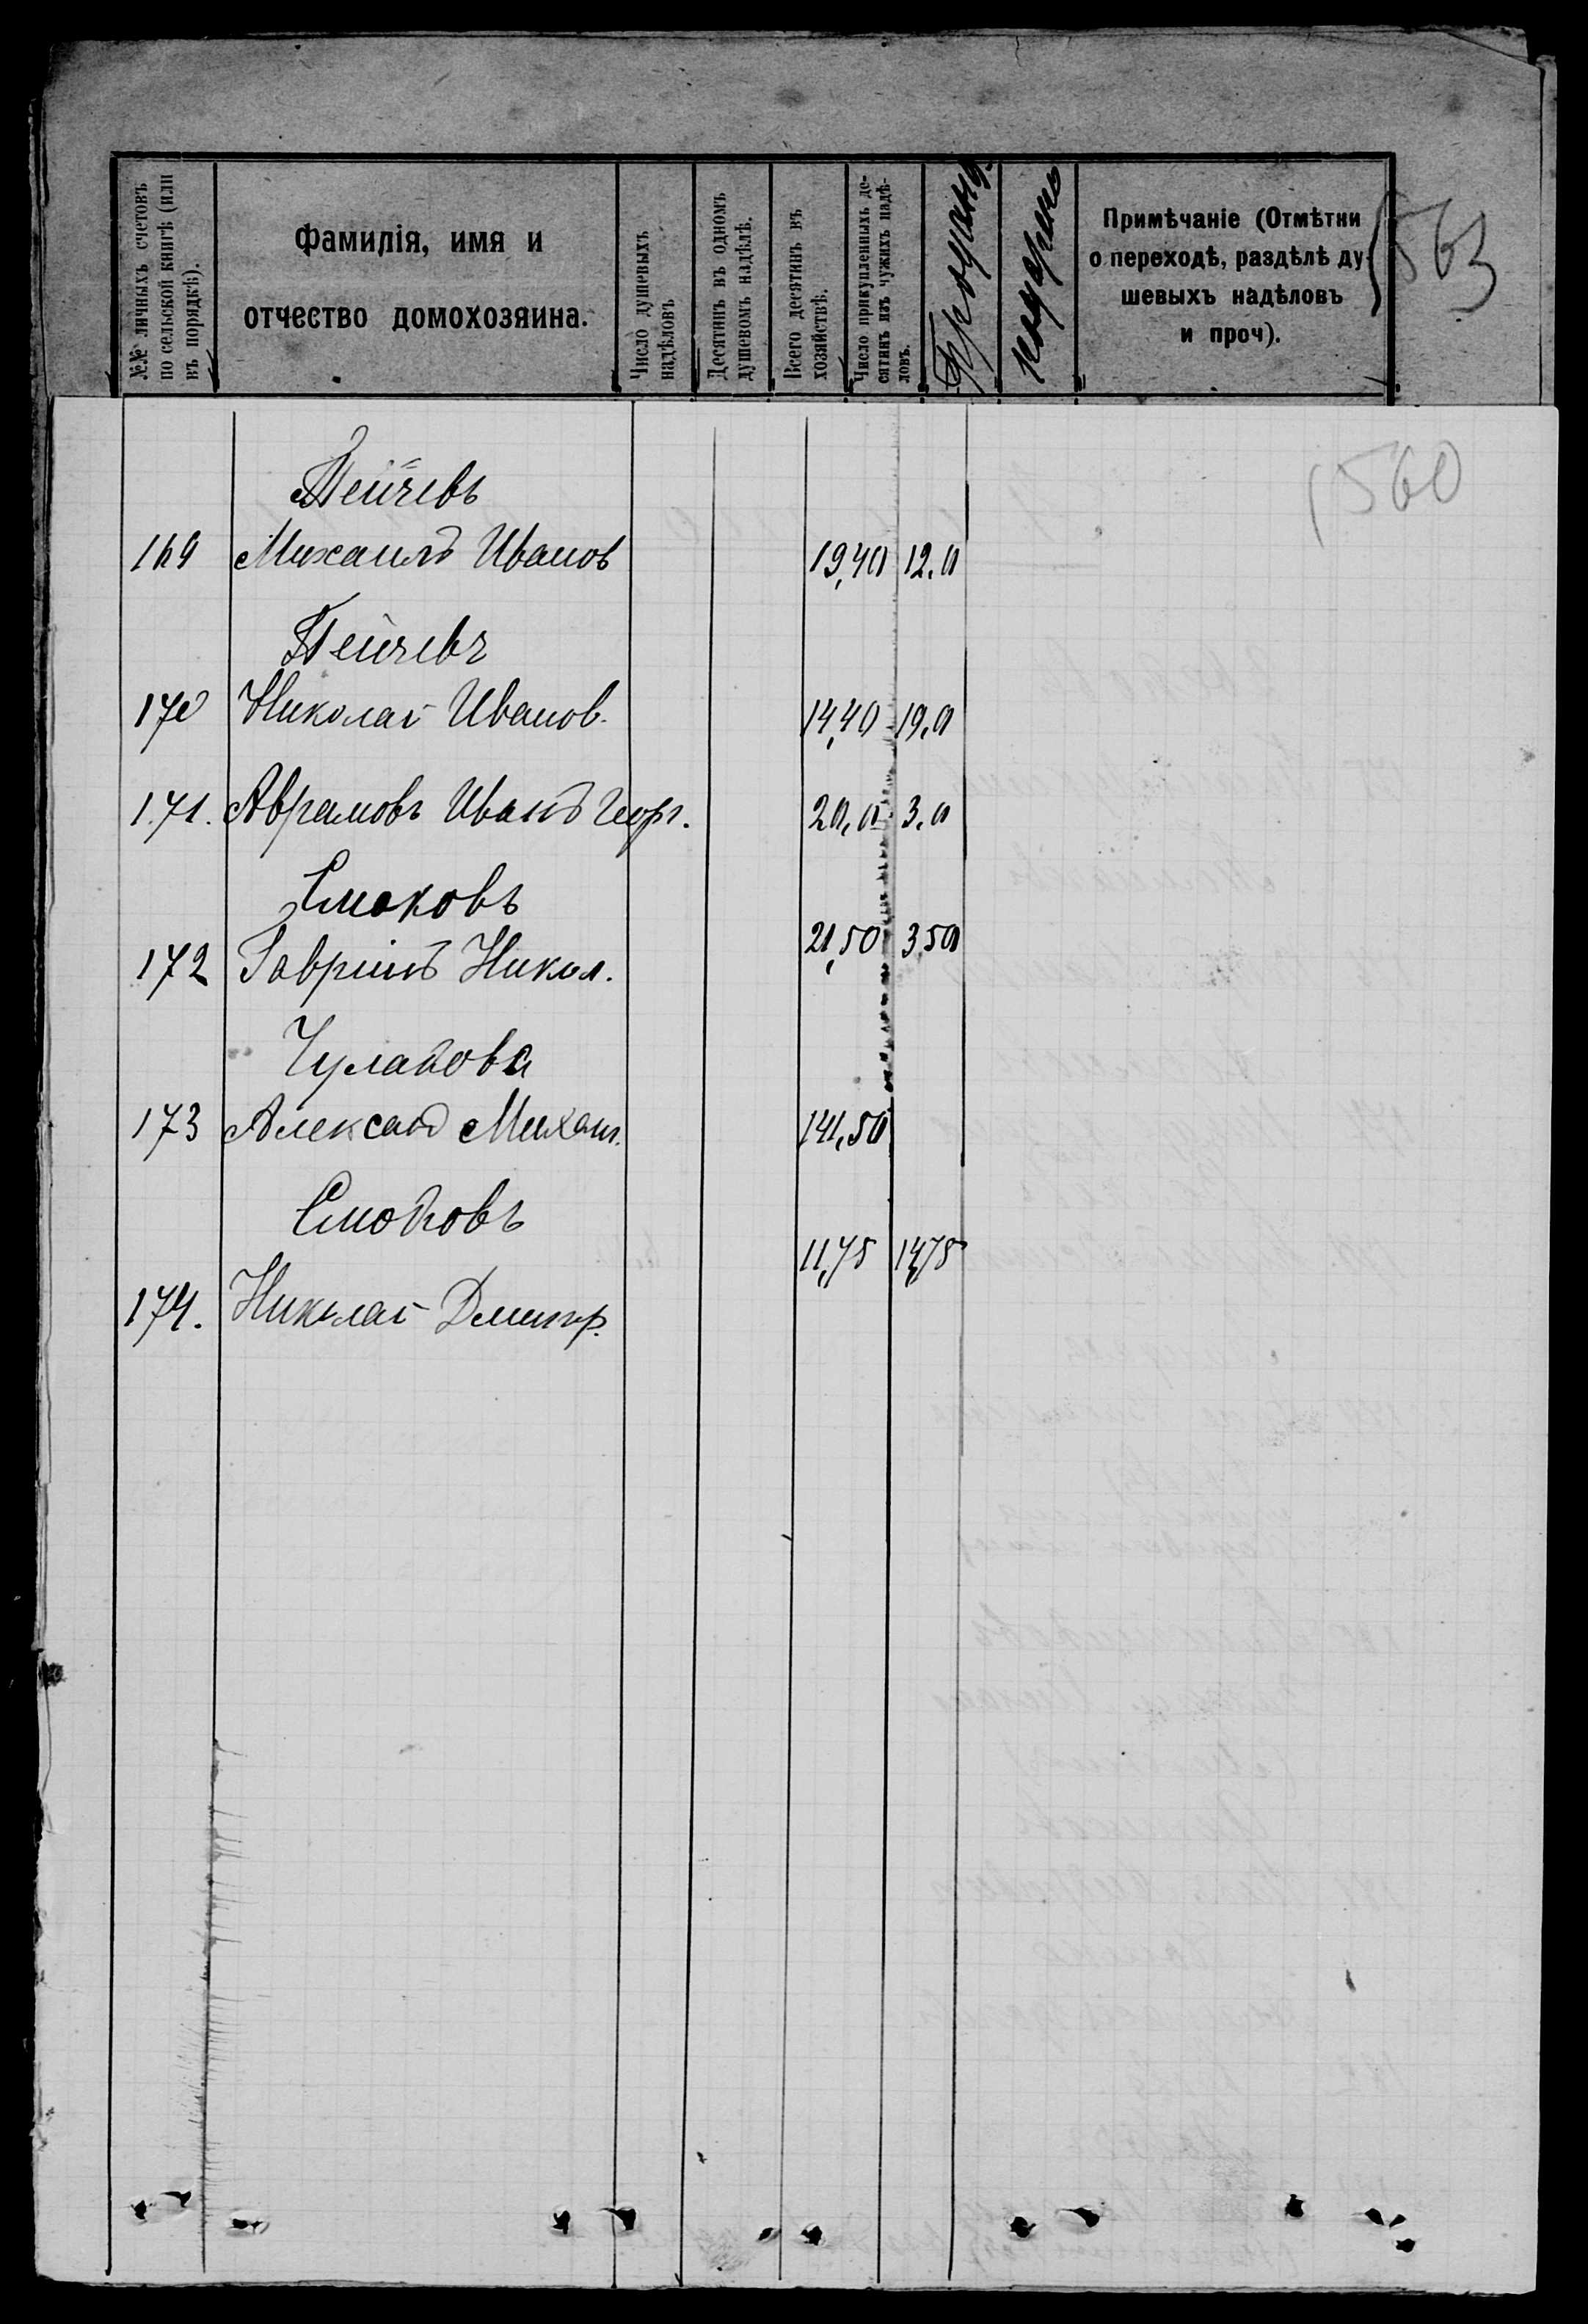 №№ личныхъ счетовъ
по сельской книгѣ (или
въ порядкѣ).
Фамилія, имя и
отчество домохозяина.
Число душевыхъ
надѣловъ
Десятинъ въ одномъ
душевомъ надѣлѣ.
Всего десятинъ въ
хозяйствѣ.
Число прикупленныхъ де-
сятинъ изъ чужихъ надѣ-
ловъ.
Примѣчаніе (Отмѣтки
о переходѣ, раздѣлѣ ду-
шевыхъ надѣловъ
и проч).
563
560
Пейчевъ
169 Михаилъ Иванов 19,40 12.0
Пейчевъ
170 Николай Иванов. 14,40 19.0
171. Аврамовъ Иванъ Георг. 20,0 3.0
Смоковъ
172 Гавріилъ Никол. 21,50 3,50
Чулакова
173 Александ Михаил. 141,50
Смоковъ
174. Николай Дмитр. 11,75 14,75